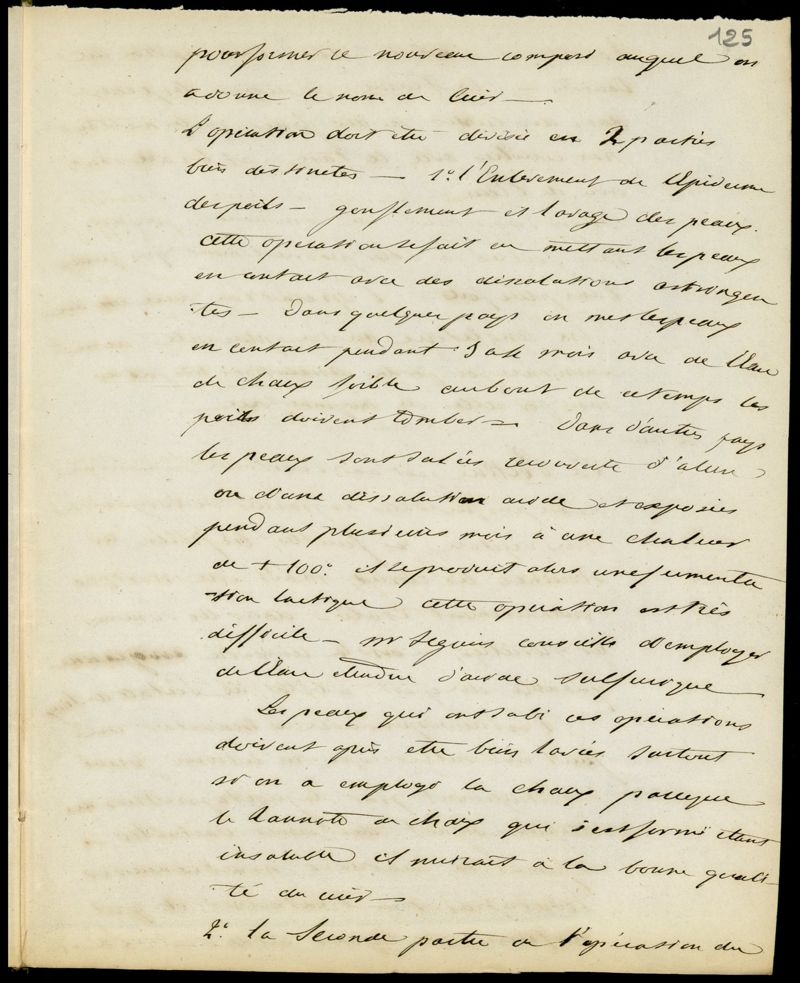 125
pour former ce nouveau composé auquel on
a donné le nom de Cuir —
L'opération doit être divisée en 2 parties
bien distinctes — 1º l'Enlèvement de l'Epiderme
des poils — gonflement et lavage des peaux.
cette opération se fait en mettant les peaux
en contact avec des dissolutions astringen
tes — Dans quelques pays on met les peaux
en contact pendant 3 à 4 mois avec de l'Eau
de chaux faible au bout de ce temps les
poils doivent tomber — Dans d'autres pays
les peaux sont salées recouverte d'alun
ou d'une dissolution acide et exposées
pendant plusieurs mois à une chaleur
de + 100º il se produit alors une fermenta
tion lactique cette opération est très
difficile — Mr Seguin conseille d'employer
de l'Eau étendue d'acide sulfurique
Les peaux qui ont subi ces opérations
doivent après être bien lavées surtout
si on a employé la chaux parceque
le tannate de chaux qui s'est formé étant
insoluble il nuirait à la bonne quali-
té du cuir —
2º la seconde partie de l'opération du